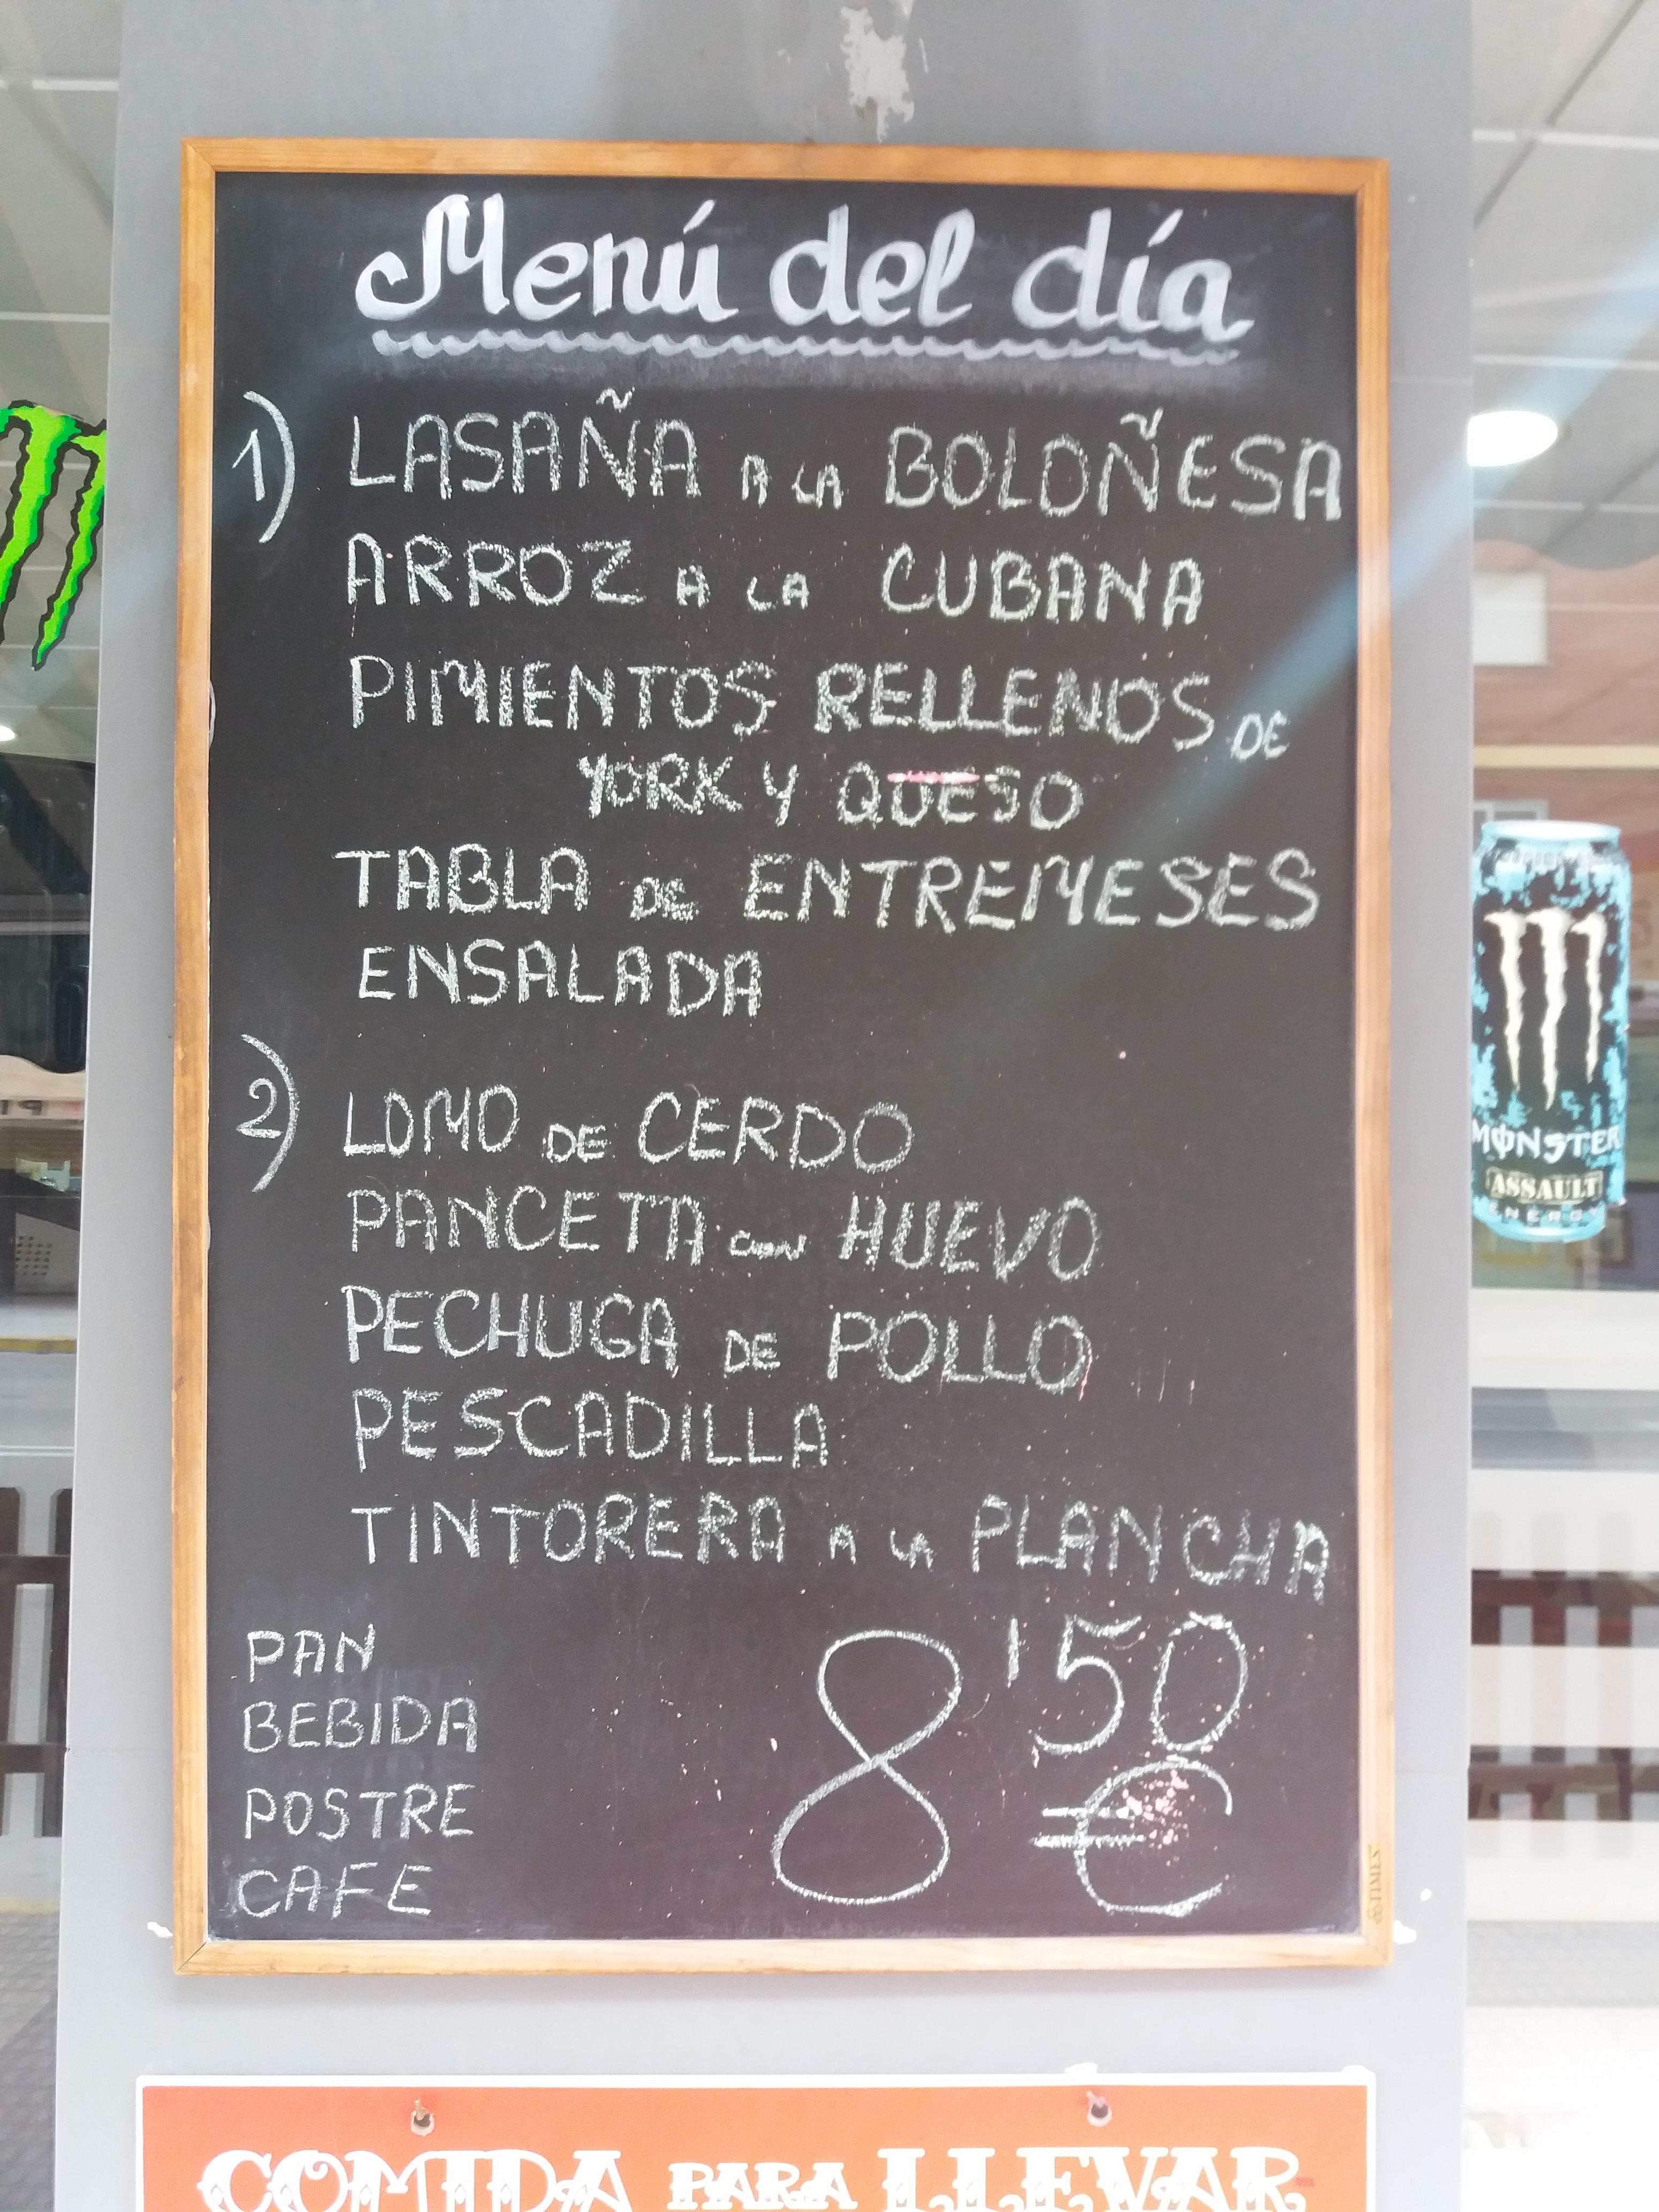 Menú del día
1) LASAÑA A LA BOLOÑESA
ARROZ A LA CUBANA
PIMIENTOS RELLENOS DE
YORK Y QUESO
TABLA DE ENTREMESES
ENSALADA
2) LOMO DE CERDO
PANCETTA CON HUEVO
PECHUGA DE POLLO
PESCADILLA
TINTORERA A LA PLANCHA
PAN
BEBIDA
POSTRE
CAFE
8'50
€
MONSTER
ASSAULT
ENERGY
COMIDA PARA LLEVAR